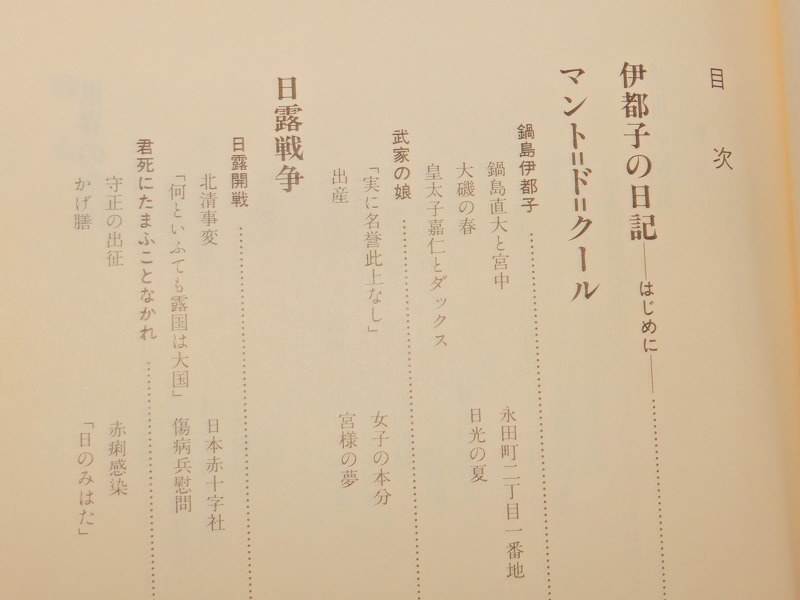 目次
伊都子の日記――はじめに――……………
マント=ド=クール
鍋島伊都子……………
鍋島直大と宮中 永田町二丁目一番地
大磯の春 日光の夏
皇太子嘉仁とダックス
武家の娘……………
「実に名誉此上なし」 女子の本分
出産 宮様の夢
日露戦争
日露開戦……………
北清事変 日本赤十字社
「何といふても露国は大国」 傷病兵慰問
君死にたまふことなかれ……………
守正の出征 赤痢感染
かげ膳 「日のみはた」